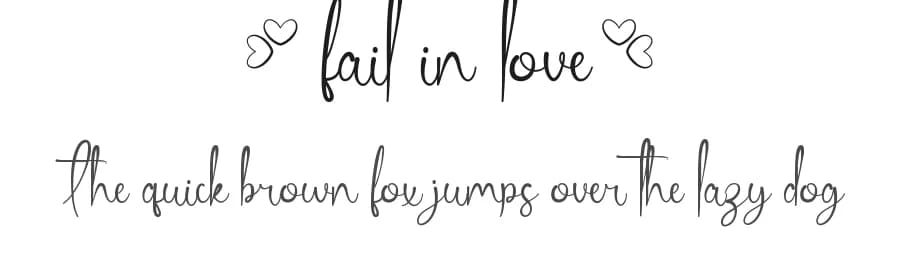 fail in love
the quick brown fox jumps over the lazy dog